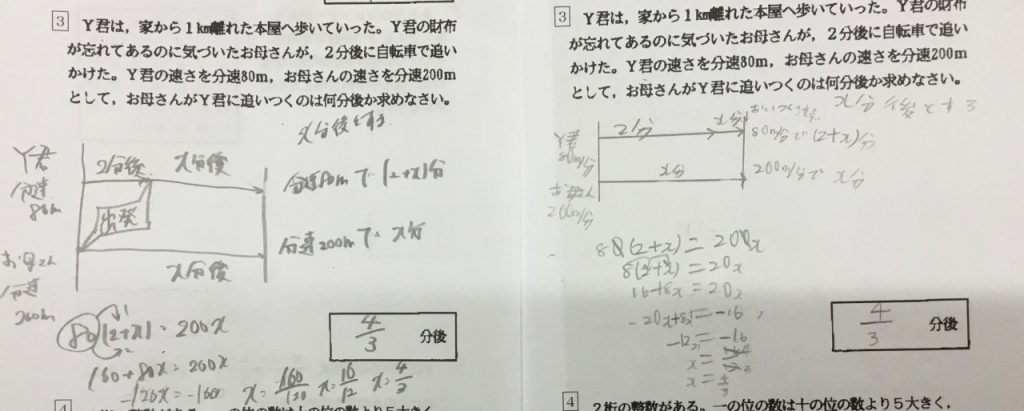 3 Y君は，家から1km離れた本屋へ歩いていった。Y君の財布
が忘れてあるのに気づいたお母さんが，2分後に自転車で追い
かけた。Y君の速さを分速80m，お母さんの速さを分速200m
として，お母さんがY君に追いつくのは何分後か求めなさい。
x分後とする
Y君
分速
80m
2分後
x分後
分速80mで(2+x)分
出発
分速200mでx分
お母さん
分速
200m
x分後
80(2+x)=200x
160+80x=200x
-120x=-160
x=160/120
x=16/12
x=4/3
4/3 分後
4
3 Y君は，家から1km離れた本屋へ歩いていった。Y君の財布
が忘れてあるのに気づいたお母さんが，2分後に自転車で追い
かけた。Y君の速さを分速80m，お母さんの速さを分速200m
として，お母さんがY君に追いつくのは何分後か求めなさい。
Y君
80m/分
2分
x分
80m/分で(2+x)分
x分
200m/分でx分
200m/分
80(2+x)=200x
8(2+x)=20x
16+8x=20x
-20x+8x=-16
-12x=-16
x=4/3
4/3 分後
4 2桁の整数がある。一の位の数は十の位の数より5大きく，